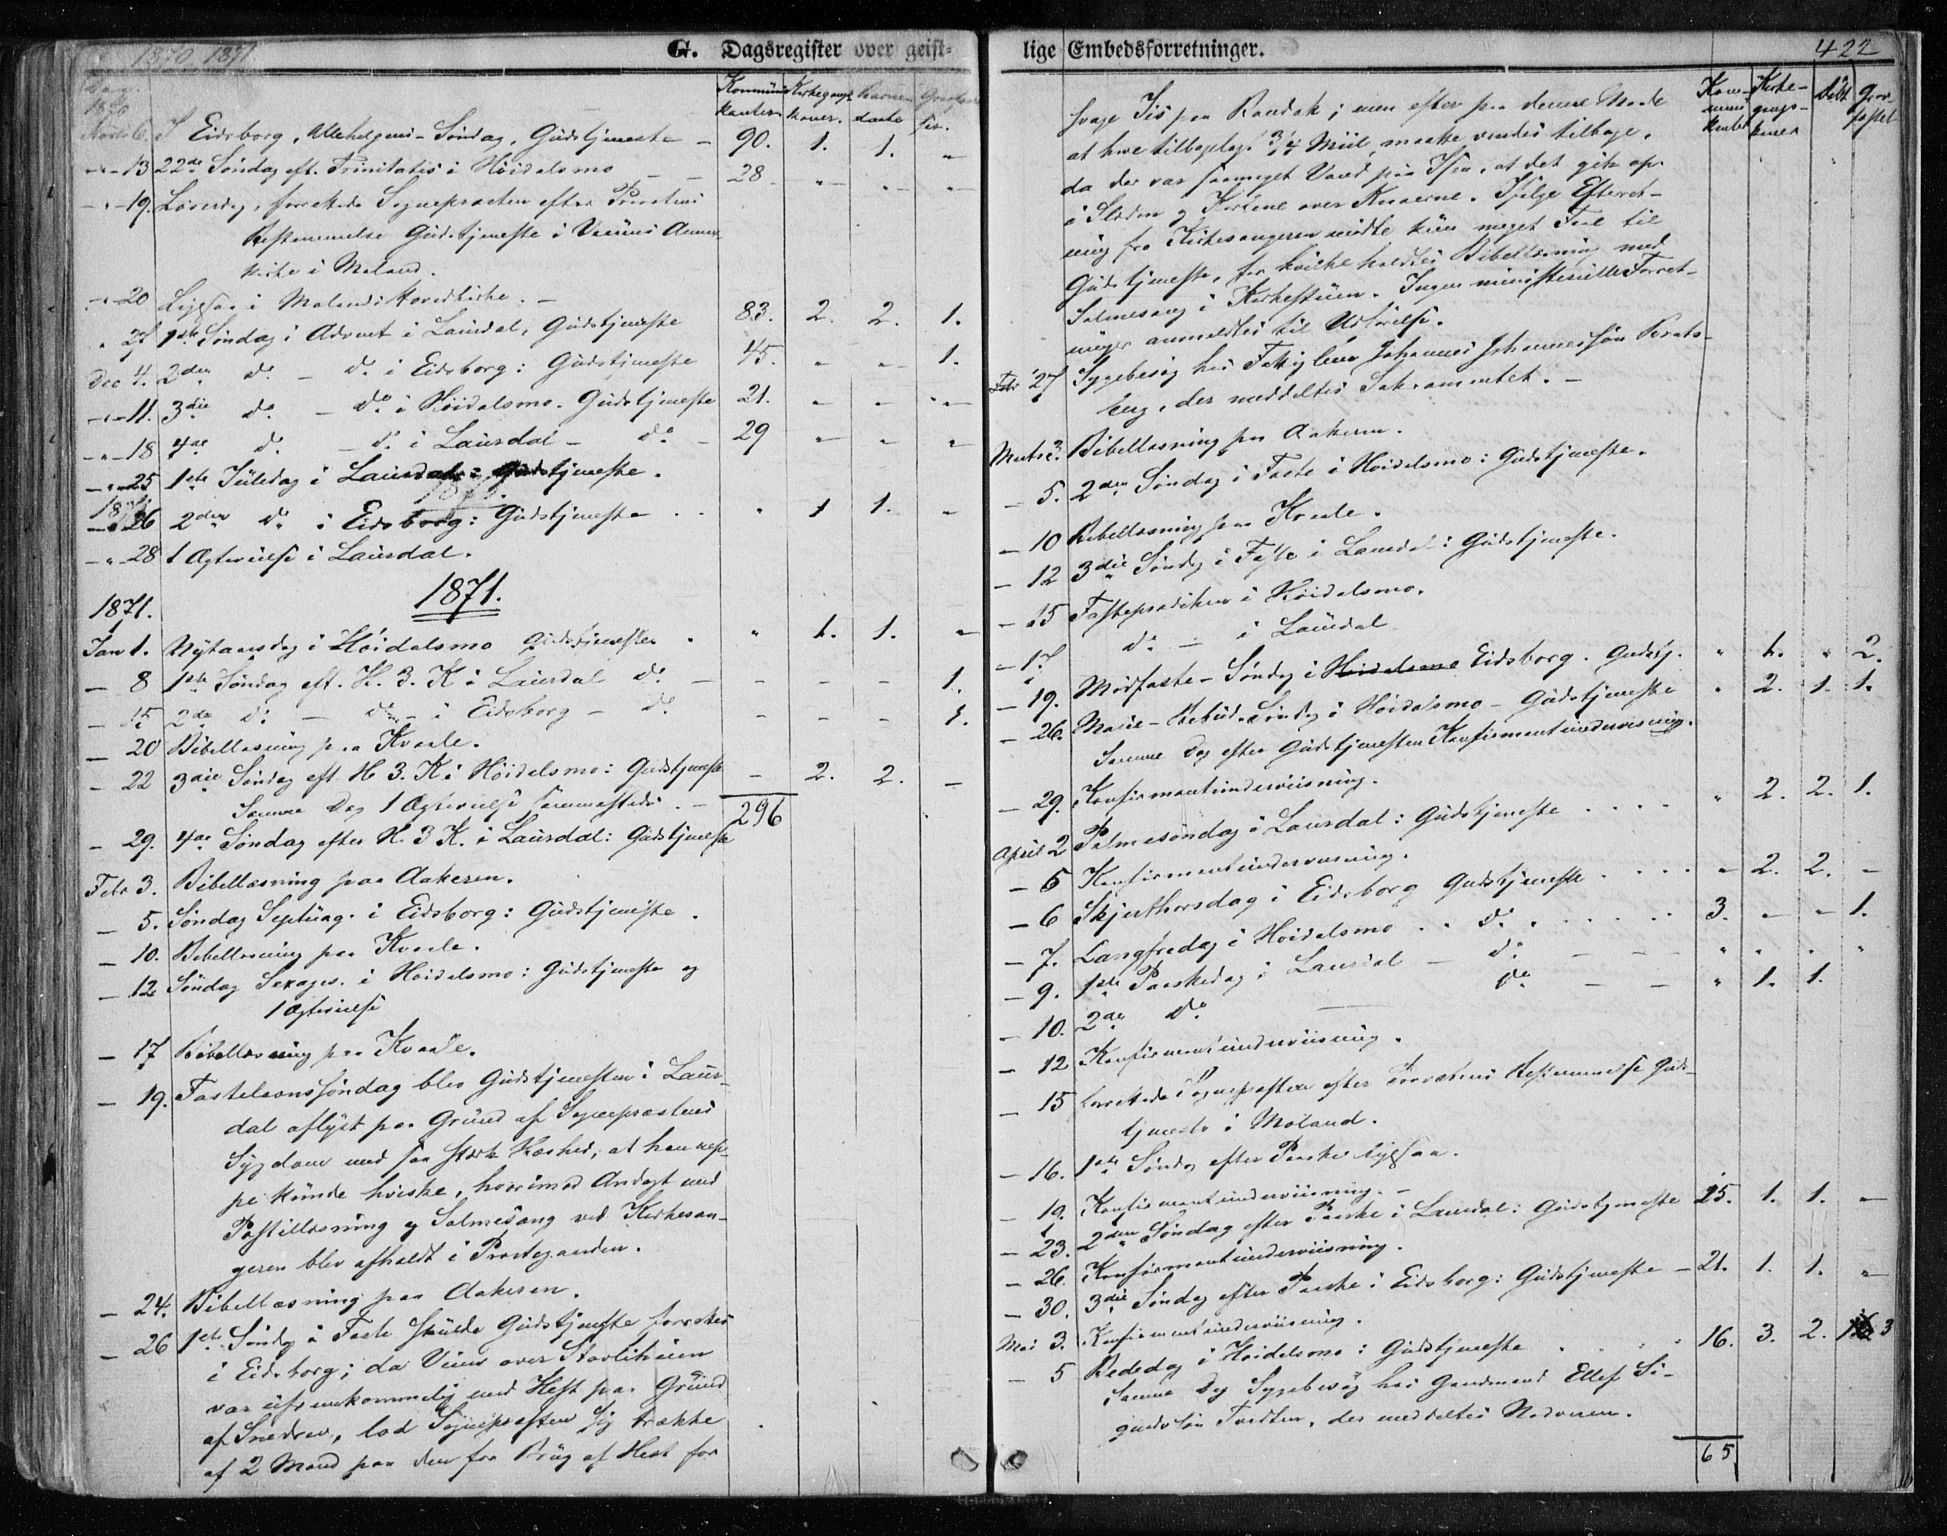 1870. 1871
G. Dagsregister over geist-
Dag.
1870
Kommuni-
kanter.
Kirkegangs-
koner.
Barne-
daab
Novbr 6. I Eidsborg, Allehelgens-Søndag, Gudstjeneste — 90. 1. 1. "
-"- 13 22de Søndag eft. Trinitatis i Høidalsmo — — 28 - "- "- "-
-"- 19. Løverdag, forrettede Sognepræsten efter Provstens
Bestemmelse Gudstjeneste i Annex-
kirke i Moland.
-"- 20 Ligesaa i Molands Hovedkirke. —
" 27 1ste Søndag i Advent i Laurdal, Gudstjeneste 83. 2. 2. 1.
Dec 4. 2den do — do i Eidsborg: Gudstjeneste 45. " " 1.
-"- 11. 3die do — do i Høidalsmo. Gudstjeneste 21. " " "
-"- 18 4de do — do i Laurdal — do — 29 " " "
-"- 25 1ste Juledag i Laurdal: Gudstjeneste.
-"- 26 2den do i Eidsborg: Gudstjeneste . . " 1 1. "
-"- 28 1 Ægtevielse i Laurdal.
1871. 1871.
Jan 1. Nytaarsdag i Høidalsmo Gudstjeneste . " 1. 1. "
— 8 1ste Søndag eft. H. 3. K i Laurdal do — — — — 1.
— 15 2den do — do — i Eidsborg — do — — — 1.
— 20 Bibellæsning paa Kvaale.
— 22 3die Søndag eft. H 3. K i Høidalsmo: Gudstjeneste — 2. 2. —
Samme Dag 1 Ægtevielse sammesteds. — 296
— 29. 4de Søndag efter H. 3 K. i Laurdal: Gudstjeneste
Febr 3. Bibellæsning paa Aakeren.
— 5. Søndag Septuag. i Eidsborg: Gudstjeneste .
— 10. Bibellæsning paa Kvaale.
— 12 Søndag Sexages. i Høidalsmo: Gudstjeneste og
1 Ægtevielse
— 17 Bibellæsning paa Kvaale.
— 19. Fastelavnssøndag blev Gudstjenesten i Laur-
dal aflyst paa Grund af Sognepræstens
Sygdom med saa stærk Hæshed, at han nep-
pe kunde hviske, hvorimod Andagt med
Postillæsning og Salmesang ved Kirkesan-
geren blev afholdt i Præstegaarden.
— 24. Bibellæsning paa Aakeren.
— 26 1ste Søndag i Faste skulde Gudstjeneste forrettes
i Eidsborg; da Veien over
var ufremkommelig med Hest paa Grund
af Snedrev, lod Sognepræsten sig trække
af 2 Mand paa den for Brug af Hest for
lige Embedsforretninger. 422
Kom-
muni-
kanter
Kirke-
gangs-
koner
Døbt
Grav-
fæstet
svage Iis paa Bandak; men efter paa denne Maade
at have tilbagelagt 3/4 Miil maatte vendes tilbage,
da der var saameget Vand paa Isen, at det gik op
i Slæden og Karlene over Knæerne. Ifølge Efterret-
ning fra Kirkesangeren mødte kun meget Faa til
Gudstjeneste, for hvilke holdtes Bibellæsning med
Salmesang i Kirkestuen. Ingen ministerielle Forret-
ninger anmeldtes til Udførelse.
Febr 27 Sygebesøg hos Johannes Johannessøn
, der meddeltes Sakramentet. —
Marts 3. Bibellæsning paa Aakeren.
— 5. 2den Søndag i Faste i Høidalsmo: Gudstjeneste.
— 10 Bibellæsning paa Kvaale.
— 12 3die Søndag i Faste i Laurdal: Gudstjeneste.
— 15 Fasteprædiken i Høidalsmo.
— 17 do — i Laurdal
— 19. Midfaste-Søndag i Høidalsmo Eidsborg. Gudstj. " 1. " 2.
— 26. Marie-Bebud. Søndag i Høidalsmo — Gudstjeneste " 2. 1. 1.
Samme Dag efter Gudstjenesten Konfirmantundervisning.
— 29. Konfirmantundervisning.
April 2 Palmesøndag i Laurdal: Gudstjeneste . . . . " 2. 2. 1.
— 5 Konfirmantundervisning.
— 6 Skjærthorsdag i Eidsborg Gudstjeneste . . . . " 2. 2. —
— 7. Langfredag i Høidalsmo . . do . . . . . . 3. " " 1.
— 9. 1ste Paaskedag i Laurdal — do — — — " " " "
— 10. 2den do — do — — " 1. 1.
— 12 Konfirmantundervisning.
— 15 Forrettede Sognepræsten efter Provstens Bestemmelse Guds-
tjeneste i Moland.
— 16. 1ste Søndag efter Paaske ligesaa.
— 19. Konfirmantundervisning. —
— 23. 2den Søndag efter Paaske i Laurdal: Gudstjeneste 25. 1. 1. —
— 26. Konfirmantundervisning.
— 30. 3die Søndag efter Paaske i Eidsborg: Gudstjeneste — 21. 1. 1. "
Mai 3. Konfirmantundervisning.
— 5 Bededag i Høidalsmo: Gudstjeneste . . . 16. 3. 2. 3
Samme Dag Sygebesøg hos Gaardmand Ellef Si-
gurdssøn Tvedten, der meddeltes Nadveren.
65